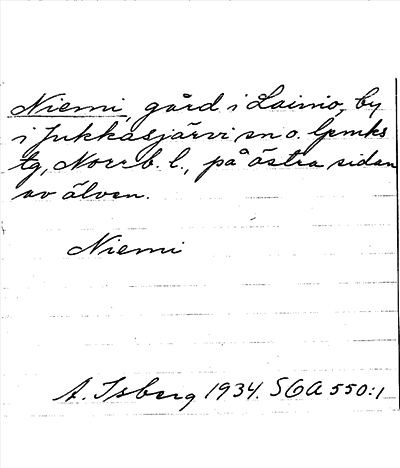 Niemi, gård i Lainio, by
i Jukkasjärvi sn o. lpmks
tg, Norrb. l., på östra sidan
av älven.
Niemi
A. Isberg 1934. SOA 550:1